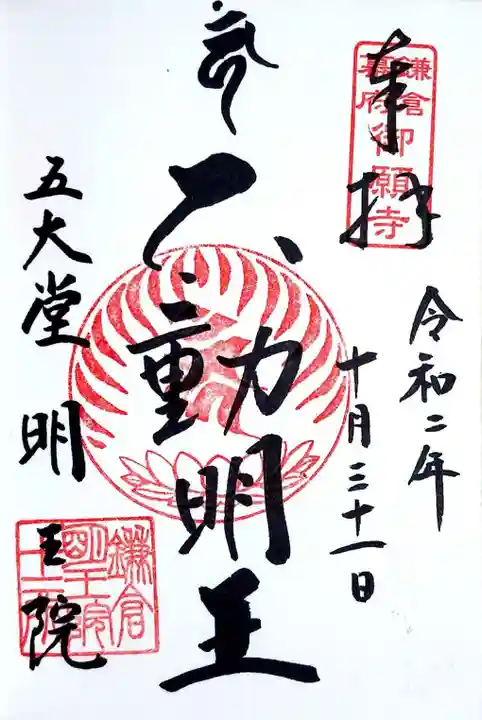 奉拝
鎌倉
幕府
御願寺
令和二年
十月三十一日
不動明王
五大堂 明王院
鎌倉
明王院